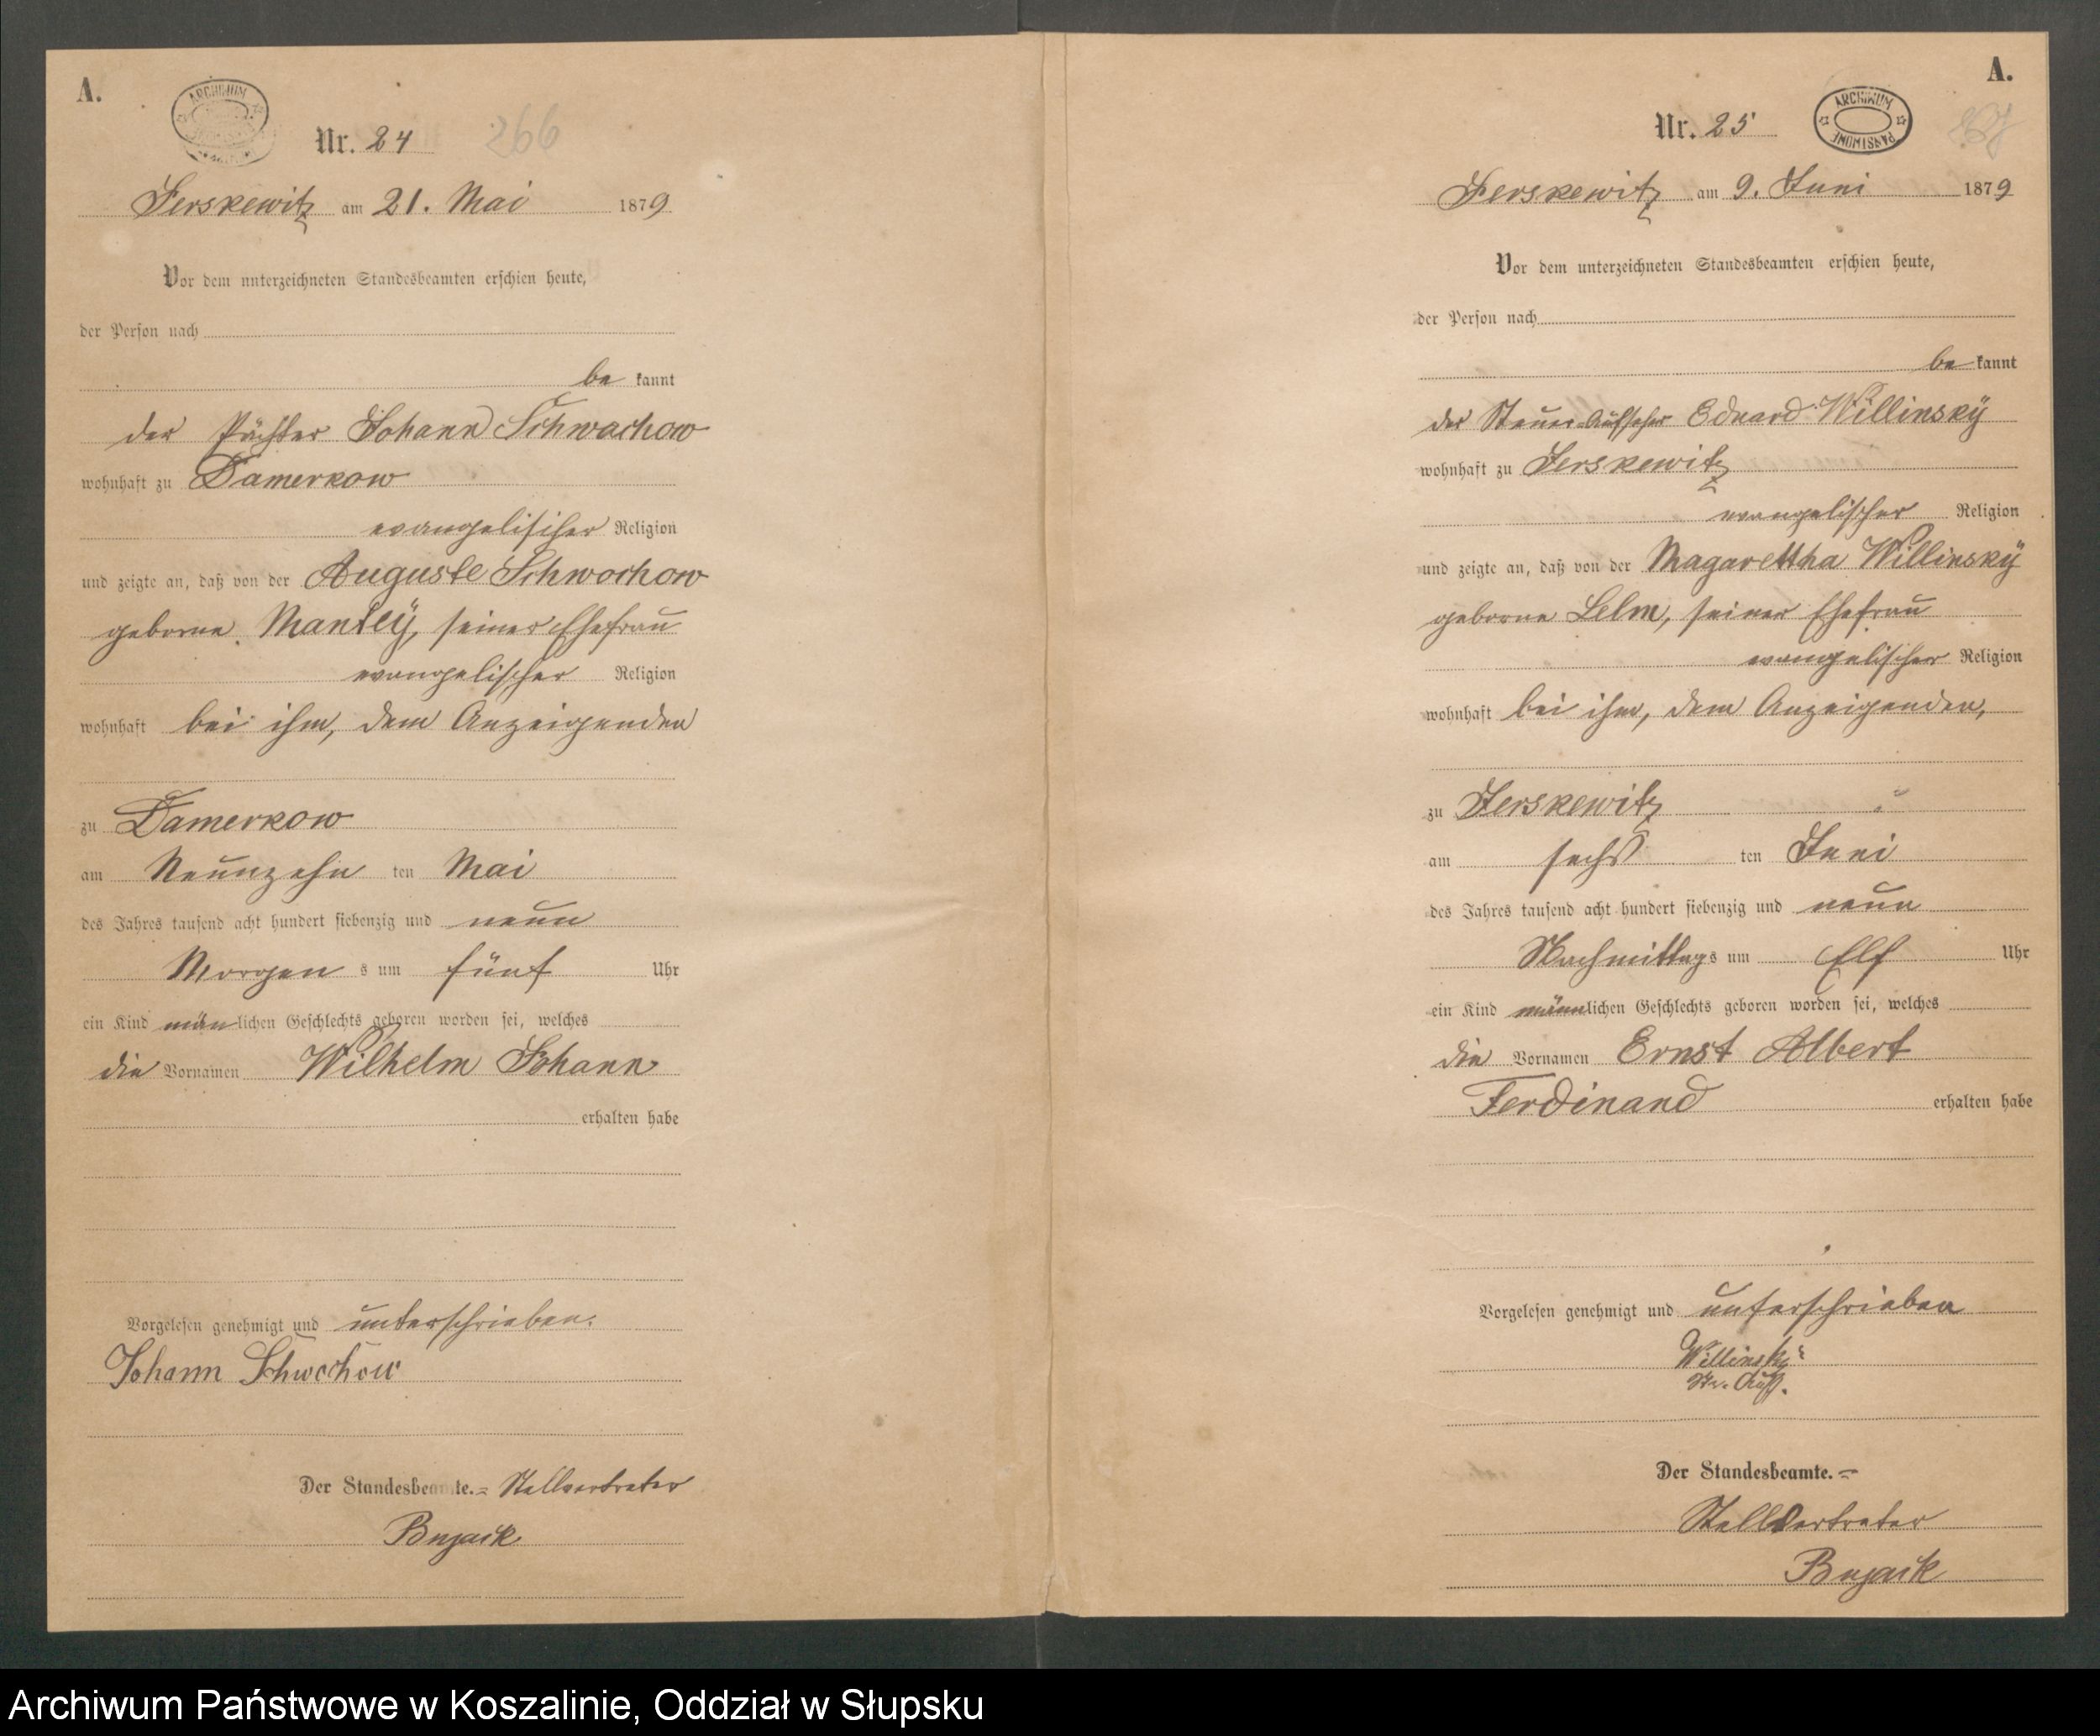 A.
ARCHIWUM
Nr. 24 266
Jerskewitz am 21. Mai 1879
Vor dem unterzeichneten Standesbeamten erschien heute,
der Person nach
be kannt
der Pächter Johann Schwachow
wohnhaft zu Damerkow
evangelischer Religion
und zeigte an, daß von der Auguste Schwochow
geborne Mantey, seiner Ehefrau
evangelischer Religion
wohnhaft bei ihm, dem Anzeigenden
zu Damerkow
am Neunzehn ten Mai
des Jahres tausend acht hundert siebenzig und neun
Morgen s um fünf Uhr
ein Kind män lichen Geschlechts geboren worden sei, welches
die Vornamen Wilhelm Johann
erhalten habe
Vorgelesen genehmigt und unterschrieben.
Johann Schwochow
Der Standesbeamte.= Stellvertreter
A.
Nr. 25
ARCHIWUM PAŃSTWOWE
Jerskewitz am 9. Juni 1879
Vor dem unterzeichneten Standesbeamten erschien heute,
der Person nach
be kannt
der Steuer-Aufseher Eduard Willinsky
wohnhaft zu Jerskewitz
evangelischer Religion
und zeigte an, daß von der Magarettha Willinsky
geborne Lelm, seiner Ehefrau
evangelischer Religion
wohnhaft bei ihm, dem Anzeigenden,
zu Jerskewitz
am sechs ten Juni
des Jahres tausend acht hundert siebenzig und neun
Nachmittags um Elf Uhr
ein Kind männlichen Geschlechts geboren worden sei, welches
die Vornamen Ernst Albert
Ferdinand erhalten habe
Vorgelesen genehmigt und unterschrieben
Willinsky
St. Auff.
Der Standesbeamte.=
Stellvertreter
Archiwum Państwowe w Koszalinie, Oddział w Słupsku